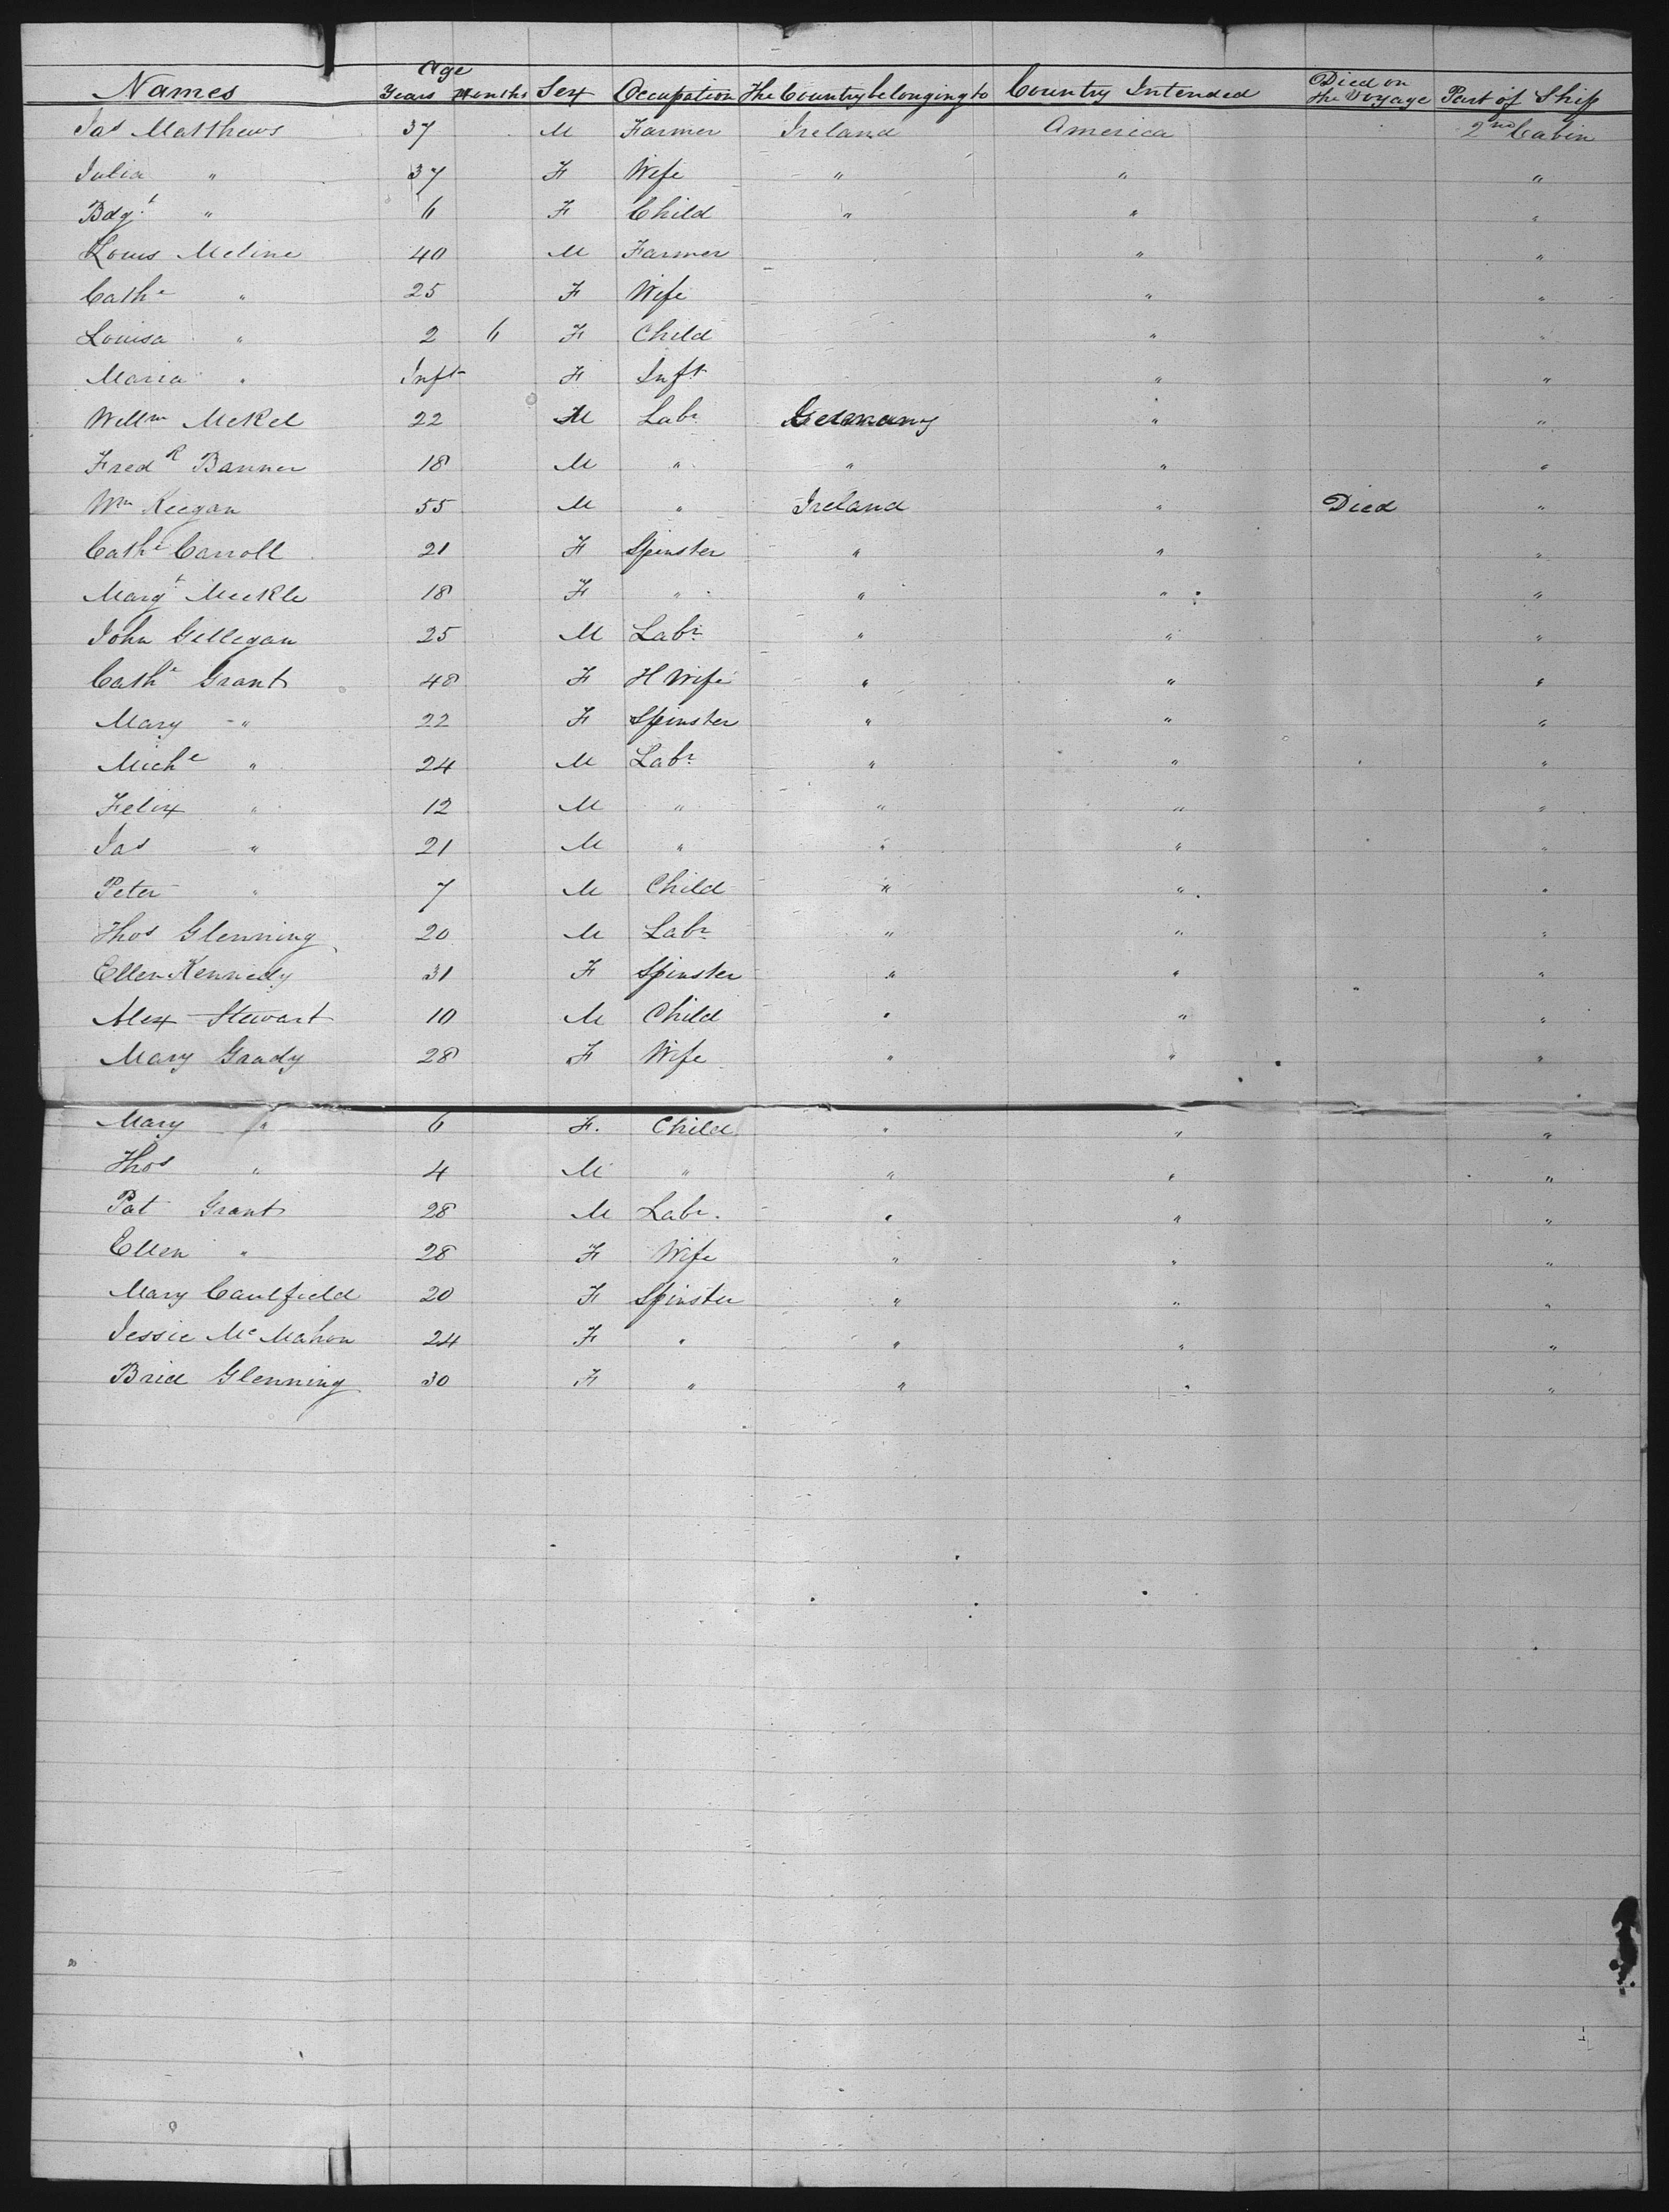 Names Age Years Months Sex Occupation The Country belonging to Country Intended Died on the Voyage Part of Ship
Jas Matthews 37 M Farmer Ireland America 2nd Cabin
Julia " 37 F Wife " " "
Bdgt " 6 F Child " " "
Louis Meline 40 M Farmer " "
Cathe " 25 F Wife " "
Louisa " 2 6 F Child " "
Maria " Inft F Inft " "
Willm Mekel 22 M Labr Germany " "
Fredk Banner 18 M " " " "
Wm Keegan 55 M " Ireland " Died "
Cathe Carroll 21 F Spinster " " "
Margt Meekle 18 F " " " "
John Gillegan 25 M Labr " " "
Cathe Grant 48 F H Wife " " "
Mary " 22 F Spinster " " "
Miche " 24 M Labr " " "
Felix " 12 M " " " "
Jas " 21 M " " " "
Peter " 7 M Child " " "
Thos Glenning 20 M Labr " " "
Ellen Kennedy 31 F Spinster " " "
Alex Stewart 10 M Child " " "
Mary Grady 28 F Wife " " "
Mary " 6 F. Child " " "
Thos " 4 M " " " "
Pat Grant 28 M Labr. " " "
Ellen " 28 F Wife " " "
Mary Caulfield 20 F Spinster " " "
Jessie McMahon 24 F " " " "
Brid Glenning 30 F " " " "